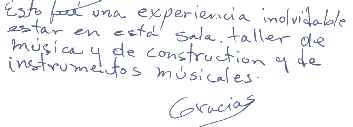 Esto una experiencia inolvidable
estar en está sala. taller de
música y de construction y de
instrumentos músicales.
Gracias